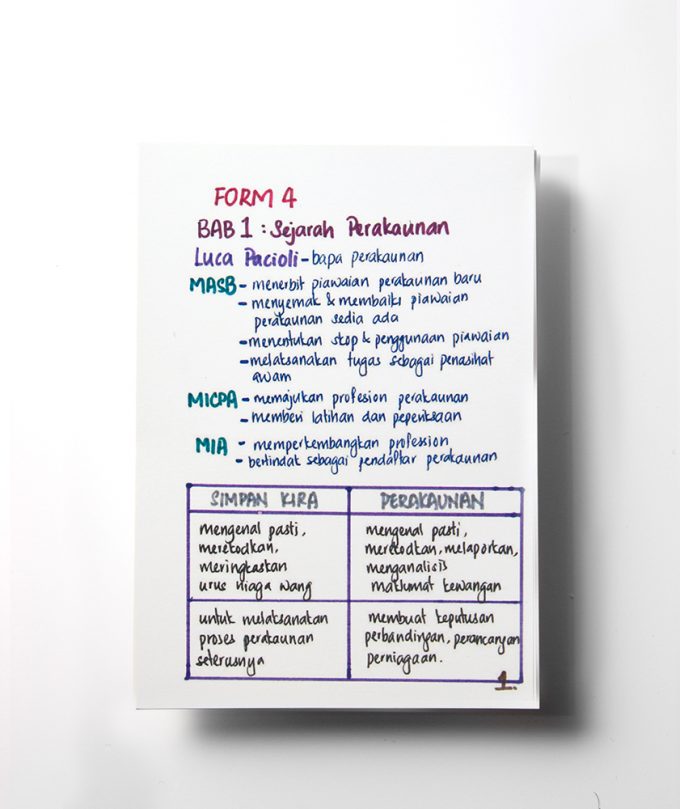 FORM 4
BAB 1 : Sejarah Perakaunan
Luca Pacioli - bapa perakaunan
MASB - menerbit piawaian perakaunan baru
- menyemak & membaiki piawaian
perakaunan sedia ada
- menentukan skop & penggunaan piawaian
- melaksanakan tugas sebagai penasihat
awam
MICPA - memajukan profesion perakaunan
- memberi latihan dan peperiksaan
MIA - memperkembangkan profession
- bertindak sebagai pendaftar perakaunan
SIMPAN KIRA
mengenal pasti,
merekodkan,
meringkaskan
urus niaga wang
PERAKAUNAN
mengenal pasti,
merekodkan, melaporkan,
menganalisis
maklumat kewangan
untuk melaksanakan
proses perakaunan
seterusnya
membuat keputusan
perbandingan, perancangan
perniagaan.
1.